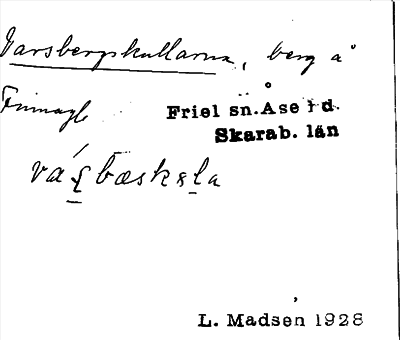 Varsbergskullarna, berg å
Finnagb
Friel sn. Åse hd.
Skarab. län
L. Madsen 1928